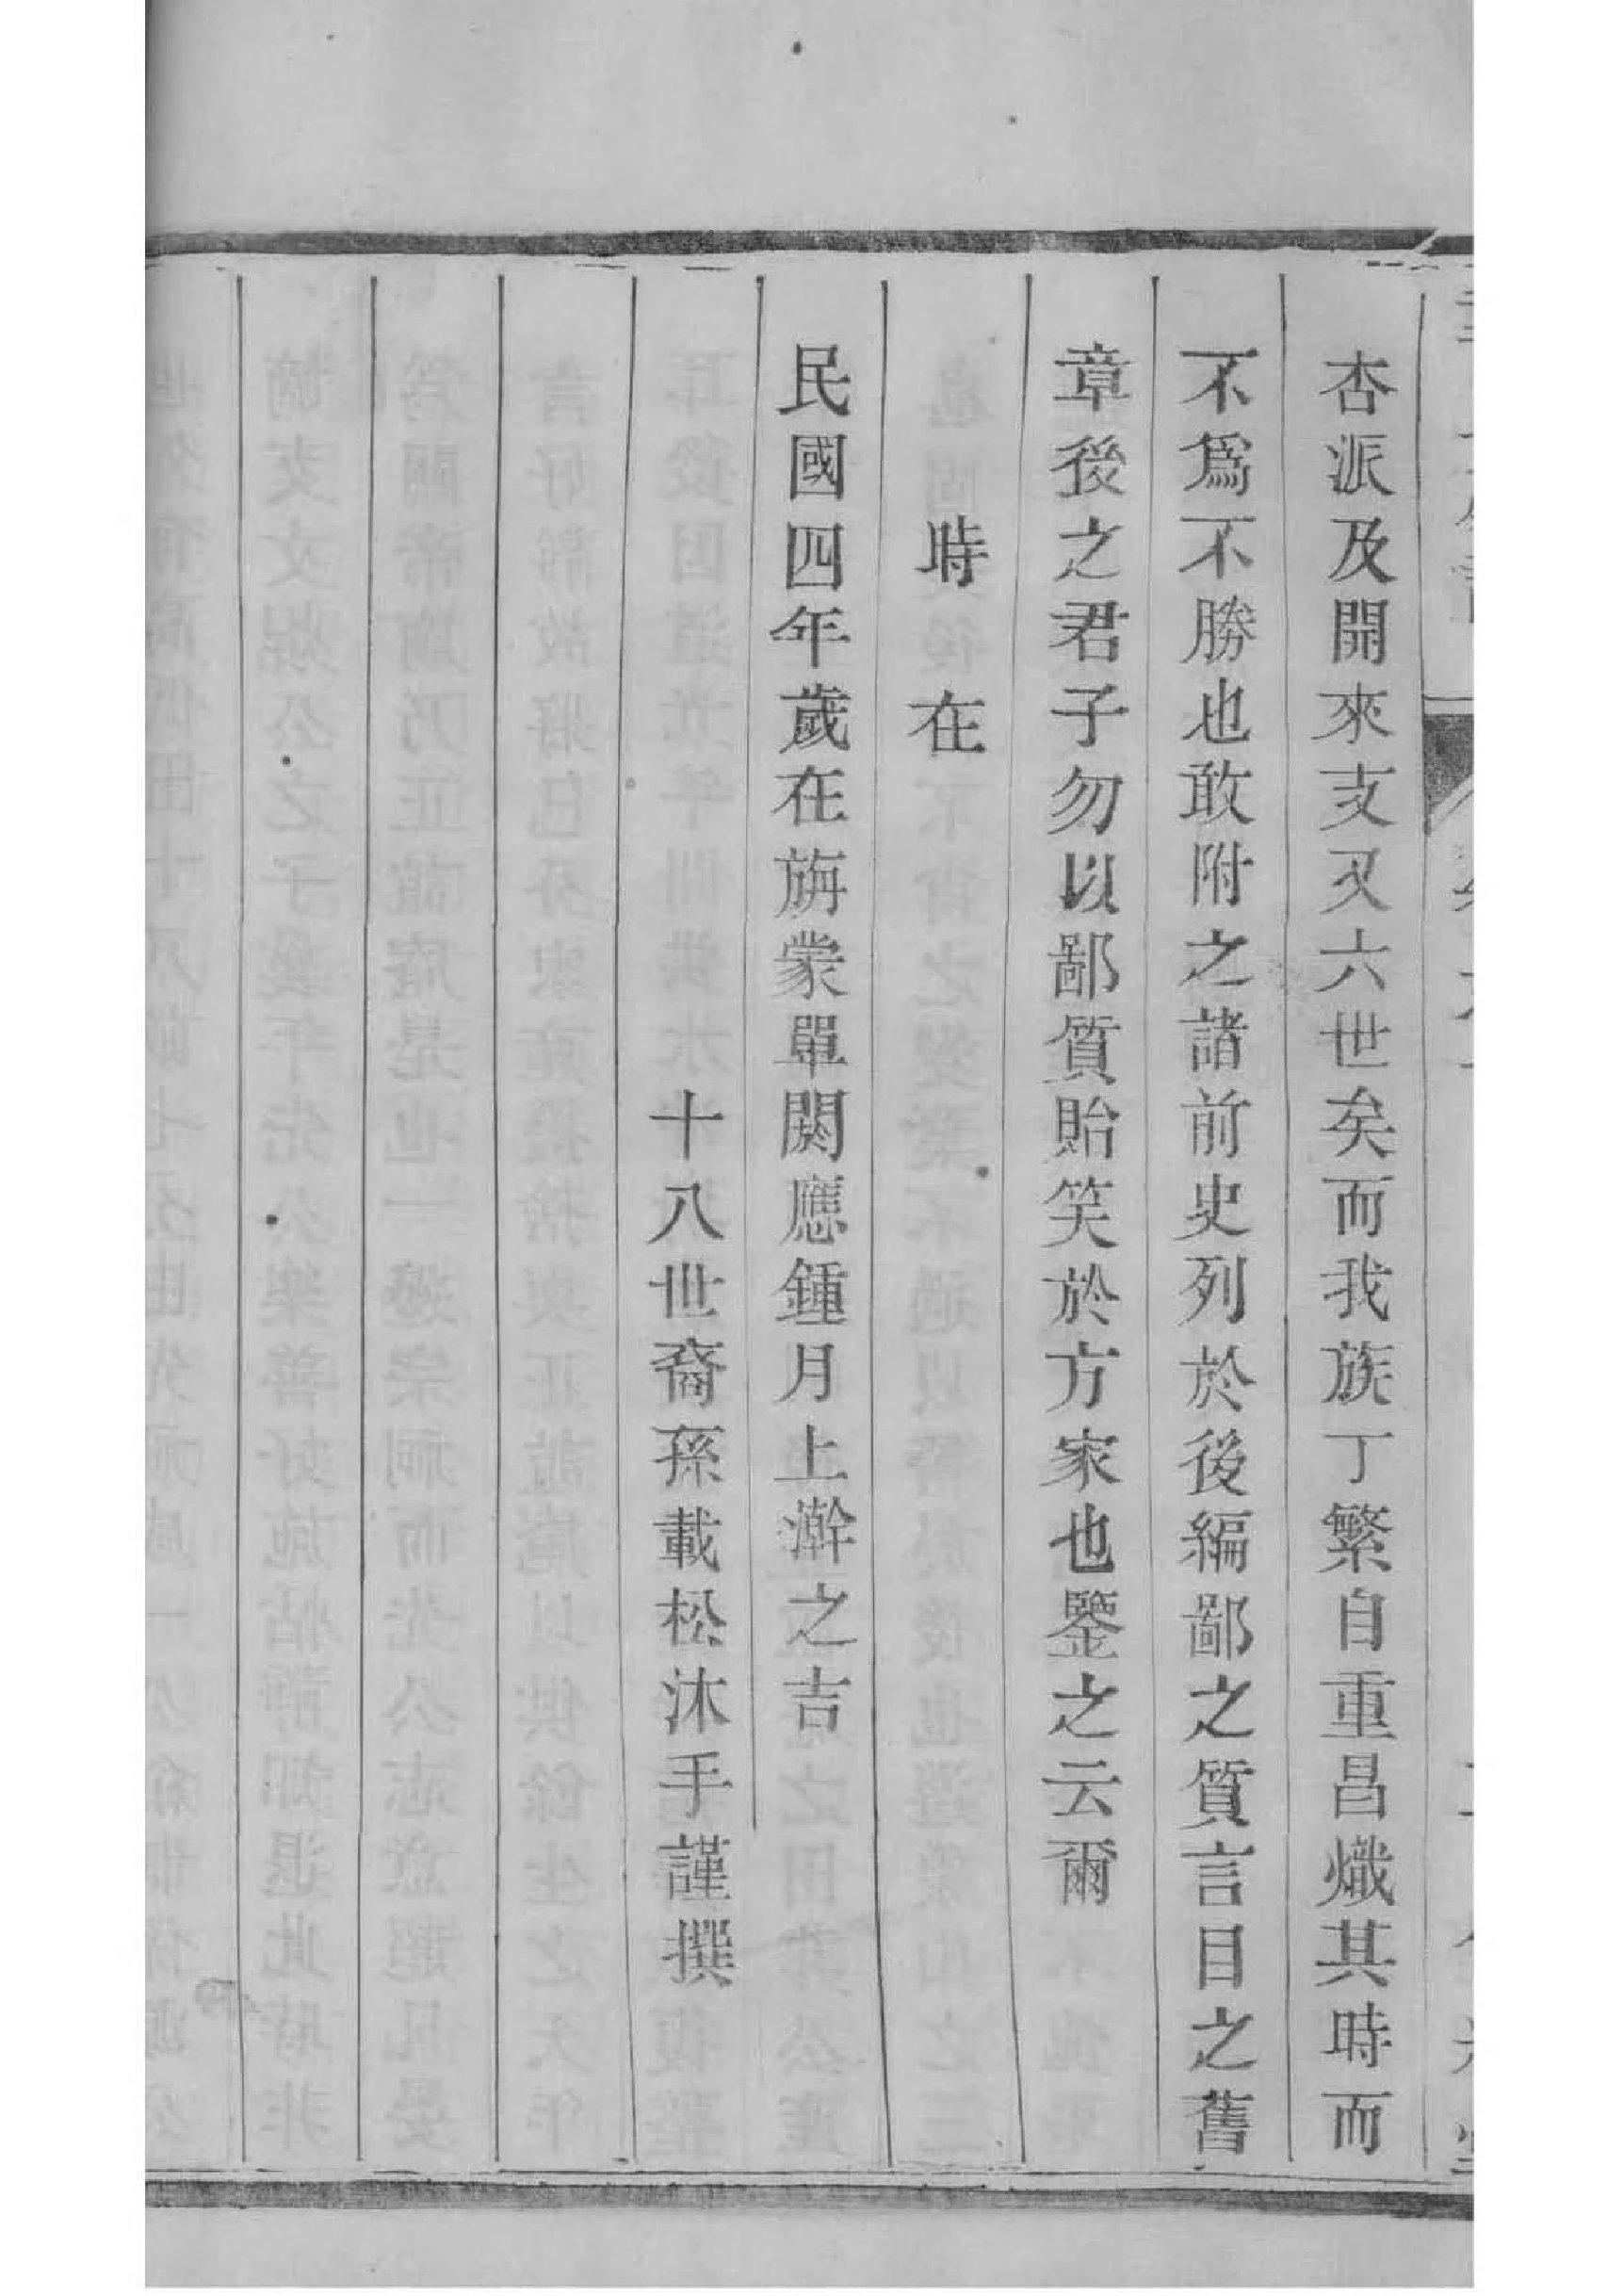 杏派及開來支又六世矣而我族丁繁自重昌熾其時而
不爲不勝也敢附之諸前史列於後編鄙之質言目之舊
章後之君子勿以鄙質貽笑於方家也鑒之云爾
時在
民國四年歲在旃蒙單閼應鍾月上澣之吉
十八世裔孫載松沐手謹撰